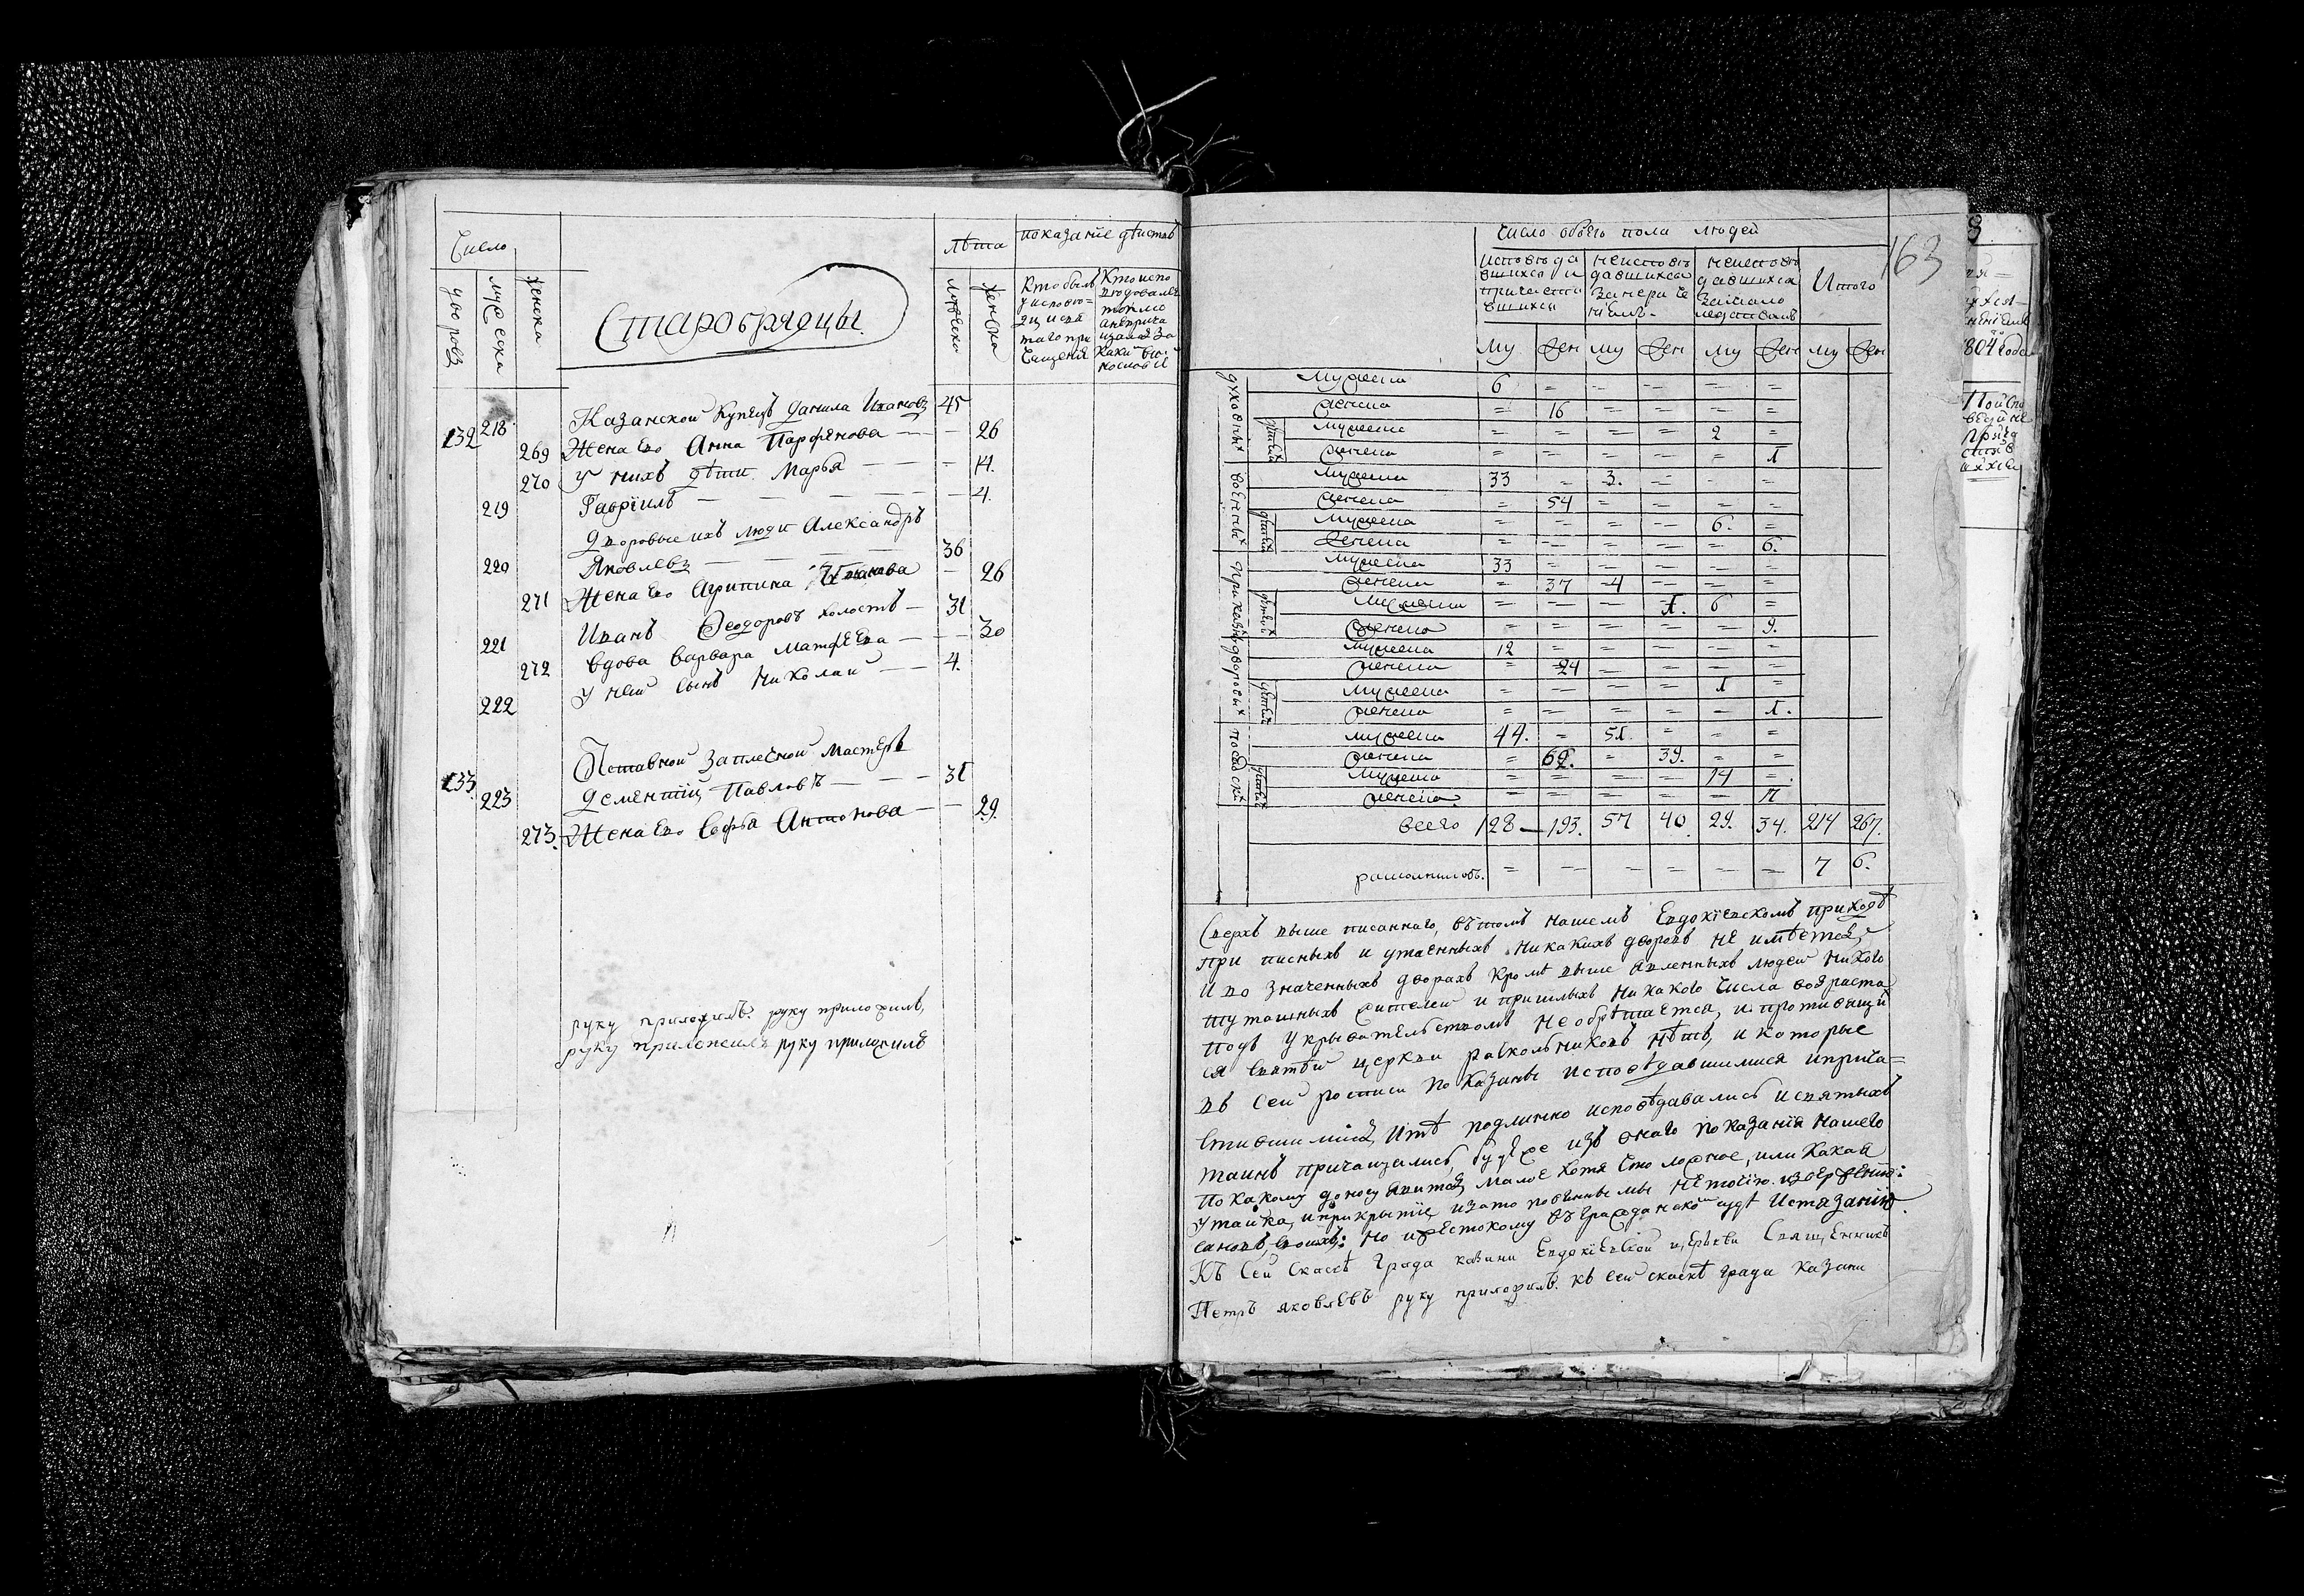 Число
дворовъ
мужеска
женска
Старобрядцы.
лѣта
мужеска
женска
показанїе дѣйства
Кто былъ
у исповѣ=
ди и свя
таго при
чащенїя
Кто испо
вѣдовалсѧ
токмо
а не прича
щался за
какимъ ви
нословїе
132 218 Казанской Купецъ Данила Ивановъ 45
269 Жена Его Анна Парфенова — — 26
270 У нихъ дѣти Марья — — — 14.
219 Гаврїилъ — — — — 4.
Дворовые ихъ люди Александръ
220 Яковлевъ — — — 36
271 Жена Его Агрипина Иванова — 26
221 Иванъ Ѳеодоровъ холостъ — 31
272 Вдова Варвара Матфеева — — 30
222 У ней сынъ Николай — — 4.
Отставной Заплечной Мастеръ
133 223 Дементїй Павловъ — — — 31
273. Жена Его Софья Антонова — — 29.
руку приложилъ. руку приложилъ,
руку приложилъ руку приложилъ
163
Число обоего пола людей
исповѣда
вшихся и
причасти
вшихся
неисповѣ
давшихся
за нераче
нїемъ.
неисповѣ
давшихся
за мало
лѣтствомъ
Итого
му жен му жен му жен му жен
духовныхъ мужеска 6 = = = = =
женска = 16 = = = =
дѣтей мужеска = = = = 2 =
женска = = = = = 1
военныхъ мужеска 33 = 3. = = =
женска = 54 = = = =
дѣтей мужеска = = = = 6. =
женска = = = = = 6.
приказныхъ мужеска 33 = = = = =
женска = 37 4 = = =
дѣтей мужеска = = = 1. 6 =
женска = = = = = 9.
дворовыхъ мужеска 12 = = = = =
женска = 24 = = = =
дѣтей мужеска = = = = 1 =
женска = = = = = 1.
посадскихъ мужеска 44. = 51. = = =
женска = 62. = 39. = =
дѣтей мужеска = = = = 14 =
женска = = = = = 17
всего 128 — 193. 57 40. 29. 34. 214 267.
раскольниковъ. = = = = = = 7 6.
Сверхъ выше писаннаго, въ томъ нашемъ Евдокїевскомъ приходѣ
при писныхъ и утаенныхъ никакихъ дворовъ не имѣется,
И во значенныхъ дворахъ кромѣ выше явленныхъ людей никого
тутошныхъ жителей и пришлыхъ никакого числа возраста
подъ укрывательствомъ не обрѣтается, и противящи
ся святѣй церкви раскольниковъ нѣтъ, и которые
въ сей росписи показаны исповѣдавшимися и прича=
стившимися, и тѣ подлинно исповѣдавались и святыхъ
таинъ причащались, будеже изъ онаго показанїя нашего
по какому доносу явится малое хотя что ложное, или какая
утайка, и прикрытїе, и за то повинны мы не точїю извержению:
сановъ своихъ: но и жестокому въ гражданско судѣ истязанїю.
Къ сей сказкѣ града казани Евдокїевской церкви Священникъ
Петръ яковлевъ руку приложилъ. къ сей сказкѣ града казани
804 года